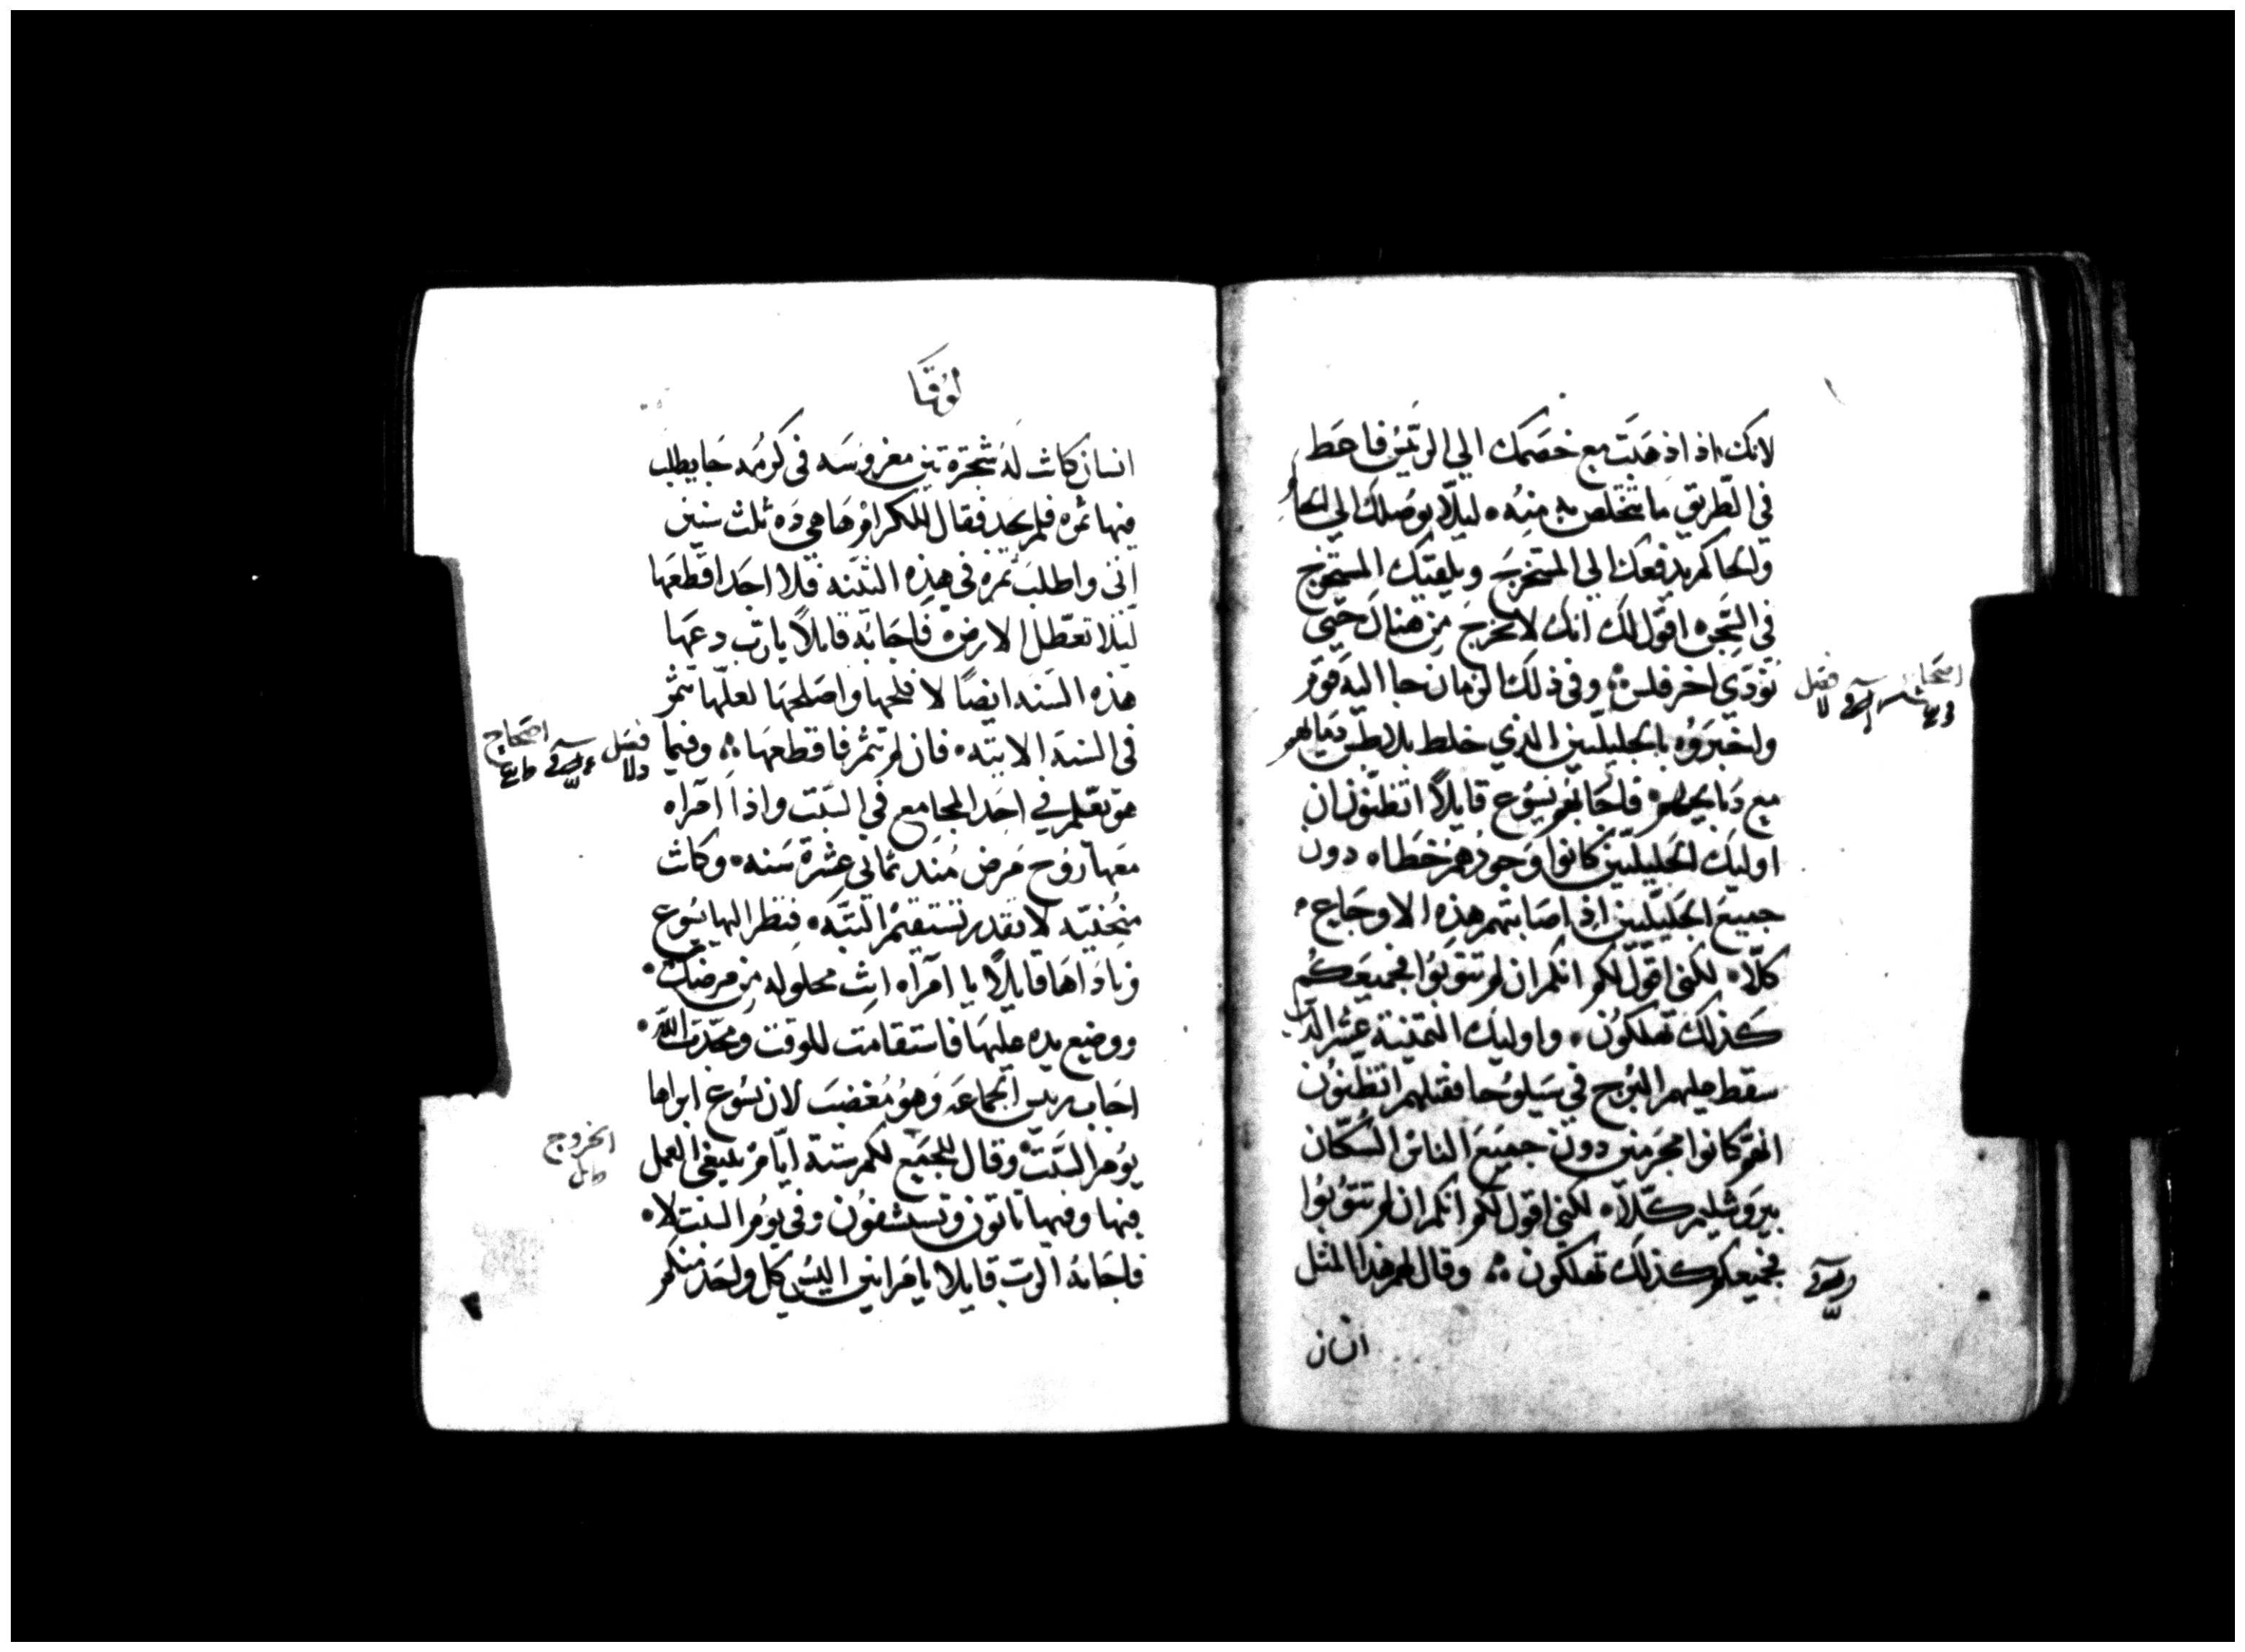 لانك اذا ذهبت مع خصمك الي الريس فاعط
في الطريق ما تتخلص به منه ليلا يوصلك الي الحاكم
والحاكم يدفعك الي المستخرج ويلقيك المستخرج
في السجن اقول لك انك لا تخرج من هناك حتي
تودي اخر فلس وفي ذلك الزمان جا اليه قوم
واخبروه بالجليليين الذي خلط بلاطس دماهم
مع دبايحهم فاجابهم يسوع قايلا اتظنون ان
اوليك الجليليين كانوا وحودهم خطاه دون
جميع الجليليين اذ اصابتهم هذه الاوجاع
كلا لكني اقول لكم انكم ان لم تتوبوا فجميعكم
كذلك تهلكون واوليك الثمنية عشر الذين
سقط عليهم البرج في سيلوحا فقتلهم اتظنون
انهم كانوا مجرمين دون جميع الناس السكان
بيروشليم كلا لكني اقول لكم انكم ان لم تتوبوا
فجميعكم كذلك تهلكون وقال لهم هذا المثل
انسان
اصحاح
فصل
لوقا
انسان كانت له شجرة تين مغروسه في كرمه جا يطلب
فيها ثمره فلم يجد فقال للكرام ها هي ده ثلث سنين
اتي واطلب ثمره في هذه التينه فلا اجد اقطعها
ليلا تعطل الارض فاجابه قايلا يا رب دعها
هذه السنه ايضا لافلحها واصلحها لعلها تثمر
في السنة الاتيه فان لم تثمر فاقطعها وفيما
هو يعلم في احد المجامع في السبت واذا امراه
معها روح مرض منذ ثماني عشرة سنه وكانت
منحنيه لا تقدر تستقيم البته فنظر اليها يسوع
وناداها قايلا يا امراه انت محلوله من مرضك
ووضع يده عليها فاستقامت للوقت ومجدت الله
اجاب ريس الجماعه وهو مغضب لان يسوع ابراها
يوم السبت وقال للجميع لكم ستة ايام ينبغي العمل
فيها وفيها تاتون وتستشفون وفي يوم السبت لا
فاجابه الرب قايلا يا مرايين اليس كل واحد منكم
فصل
اصحاح
الخروج